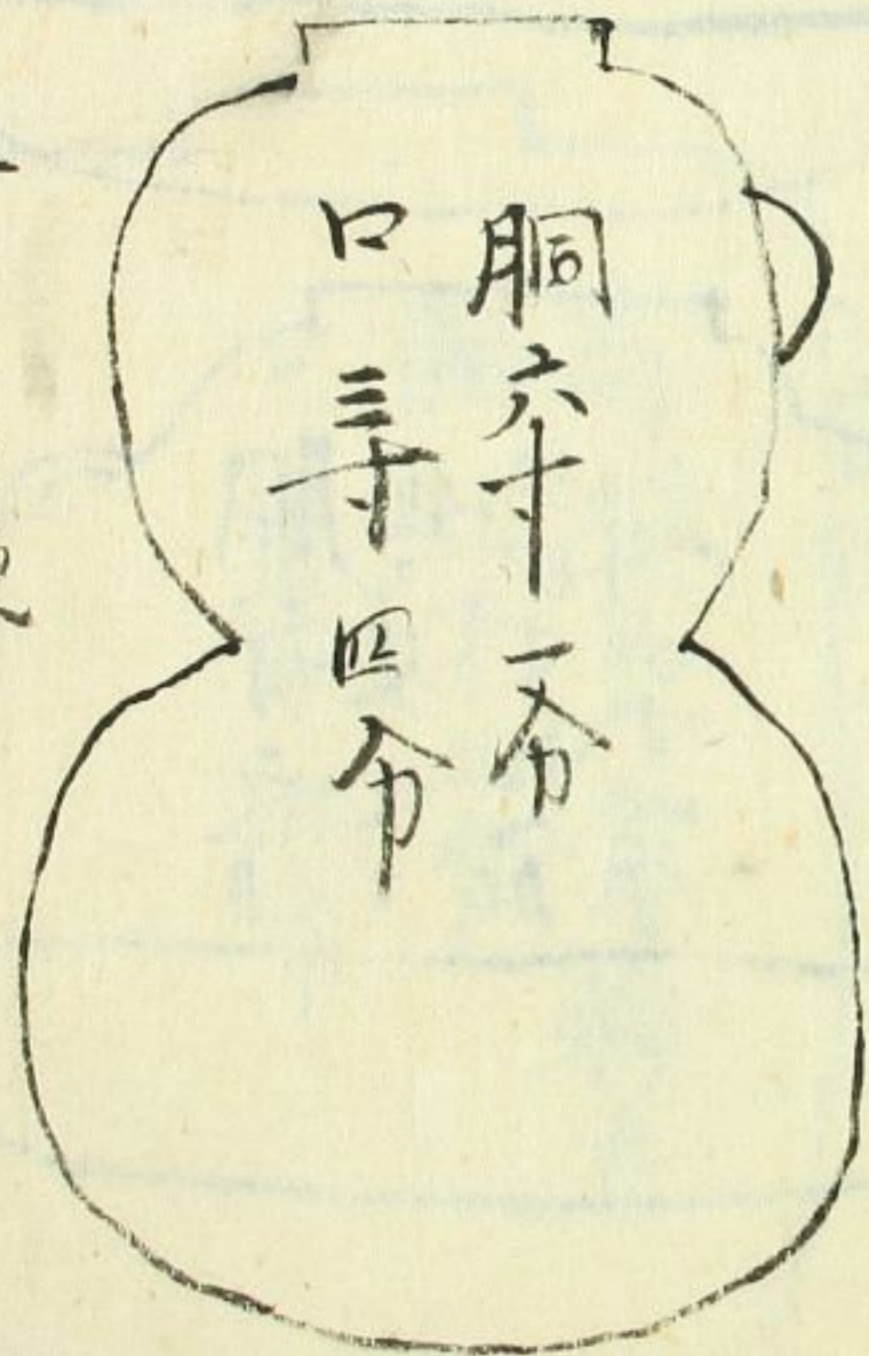 胴六寸一分
口三寸四分